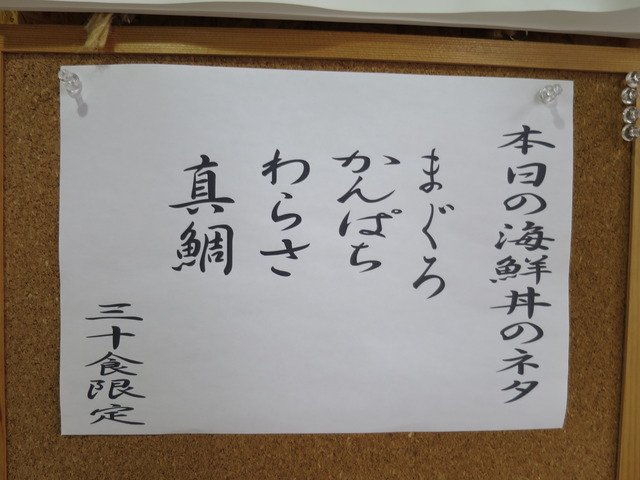 本日の海鮮丼のネタ
まぐろ
かんぱち
わらさ
真鯛
三十食限定